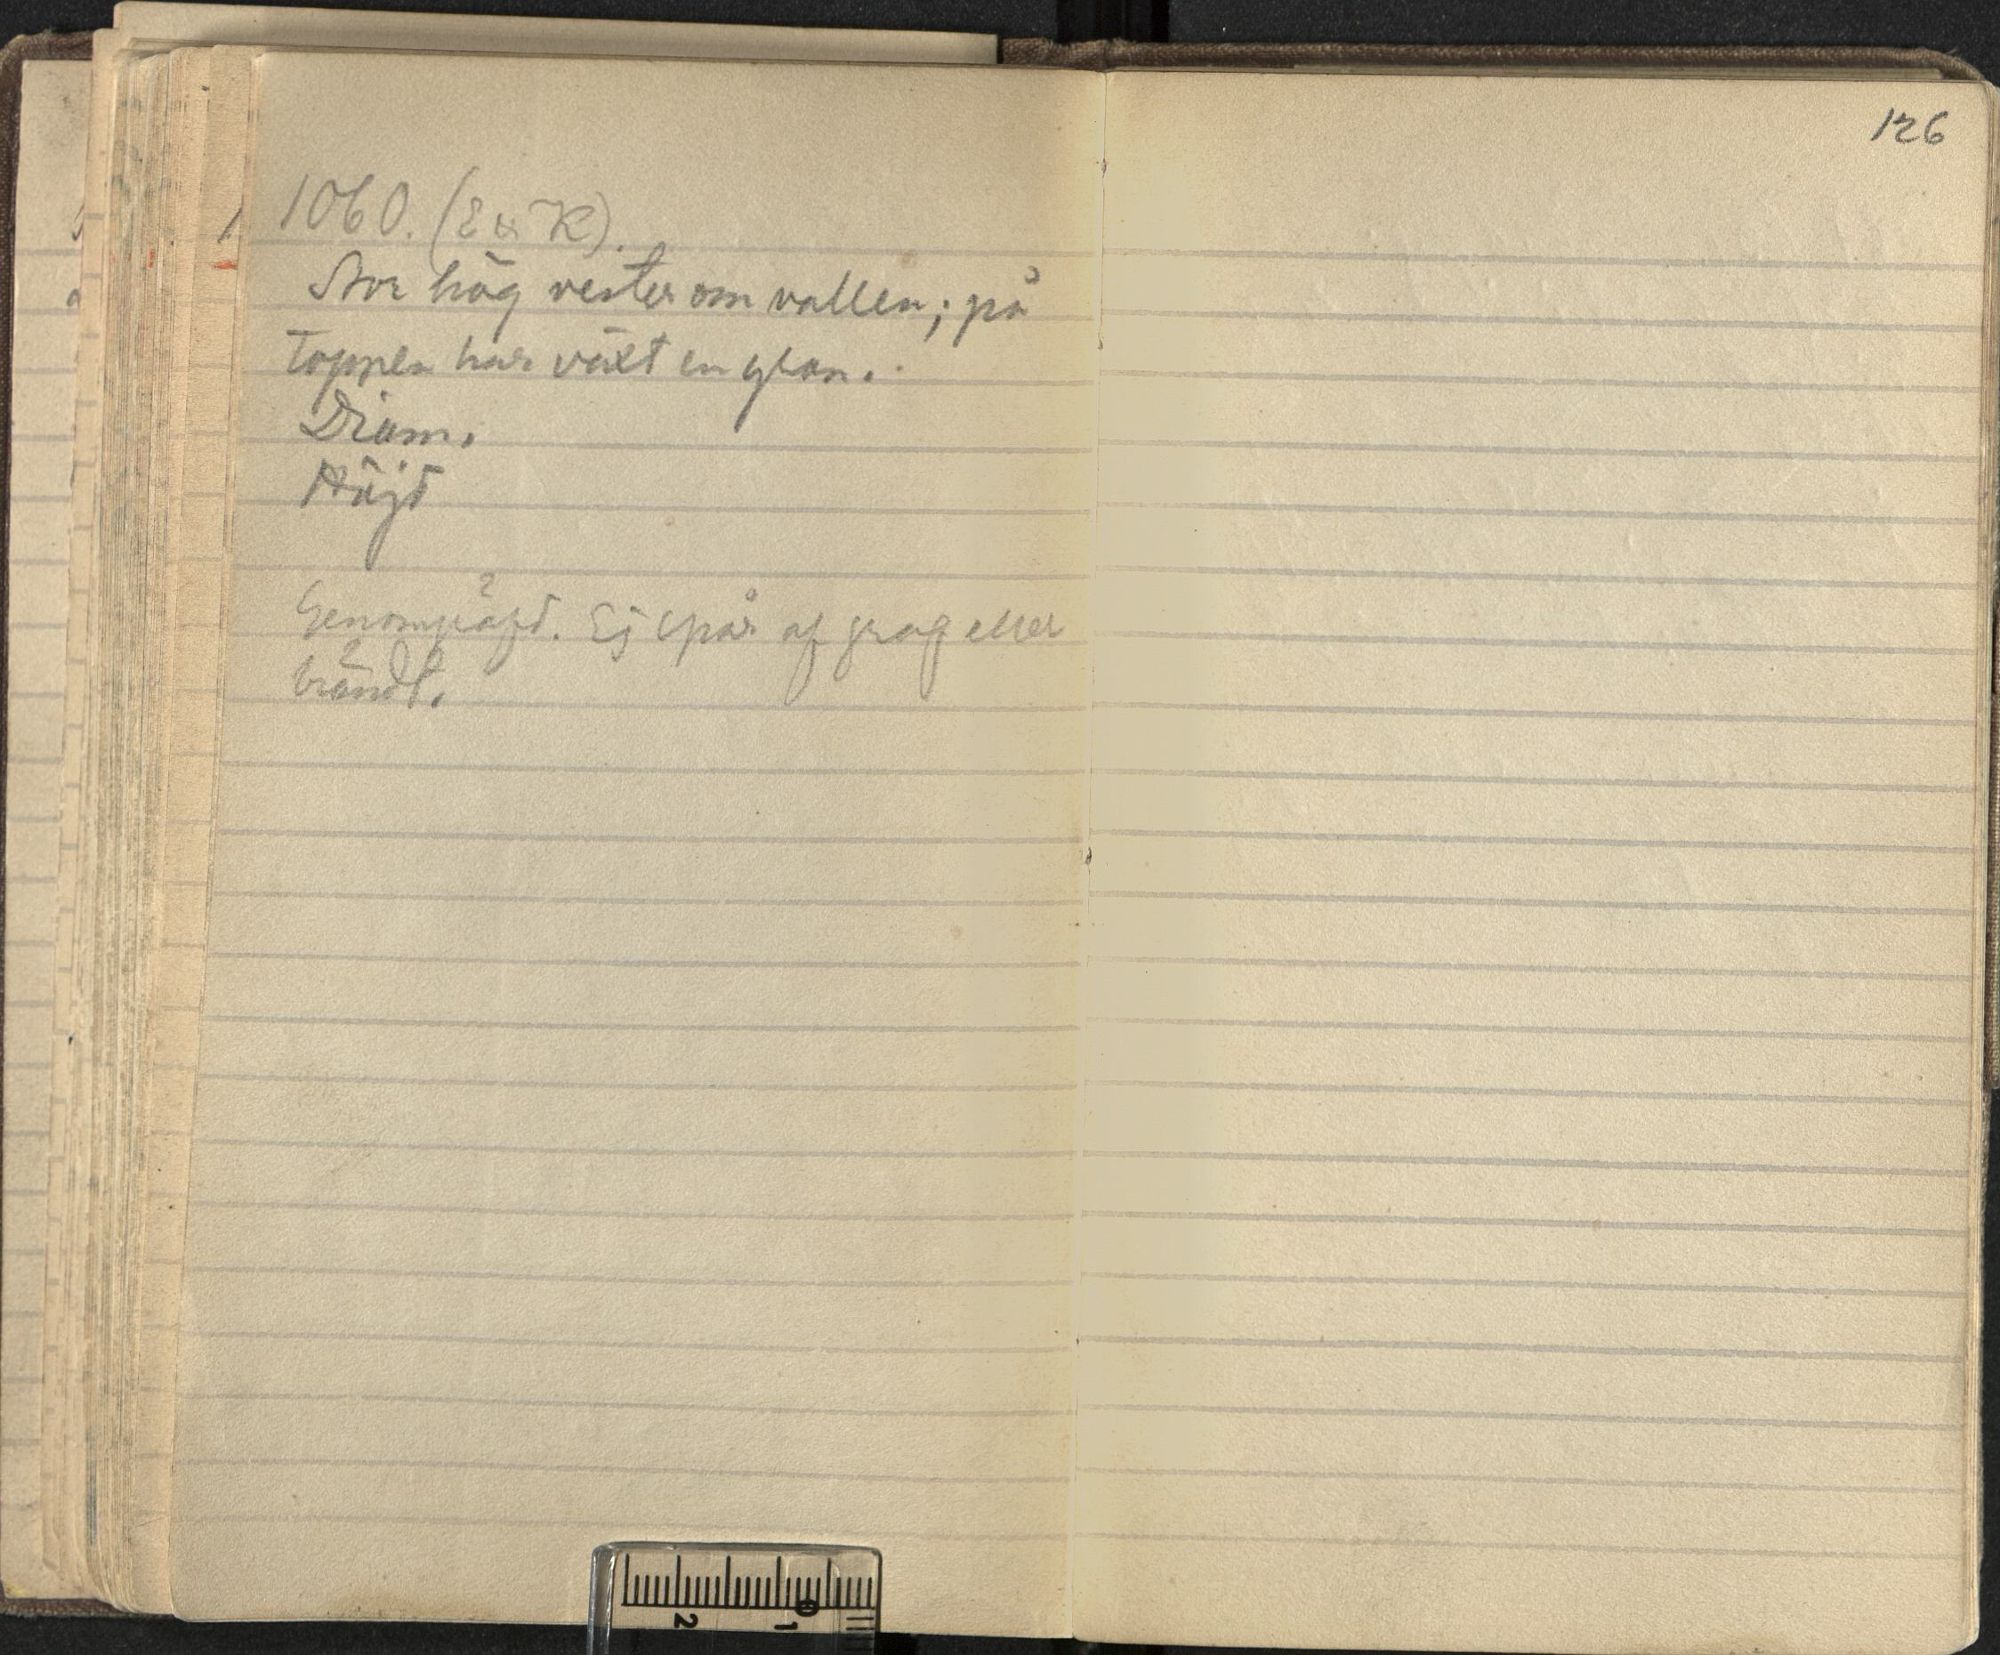 1060. (E & K).
Stor hög vester om vallen; på
toppen har växt en gran.
Diam.
Höjd
Genomgräfd. Ej spår af graf eller
brändt.
126